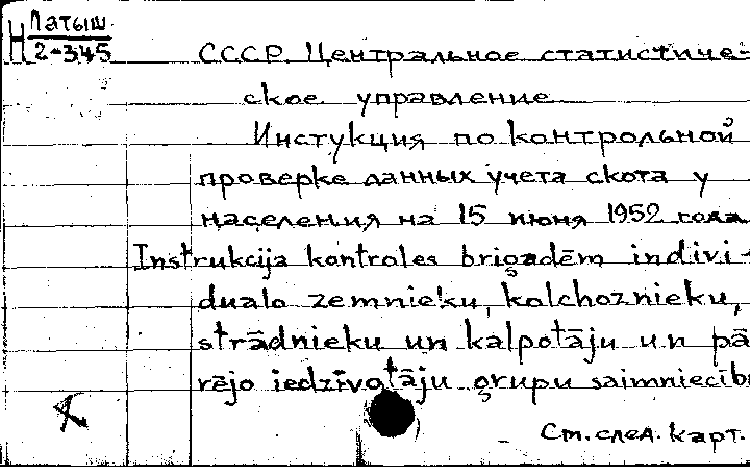 Н Латыш.
2-345
СССР. Центральное статистиче-
ское управление
Инстукция по контрольной
проверке данных учета скота у
населения на 15 июня 1952 года
Instrukcija kontroles brigadēm indivi-
duālo zemnieku, kolchoznieku,
strādnieku un kalpotāju un pā-
rējo iedzīvotāju grupu saimniecībā
См. след. карт.